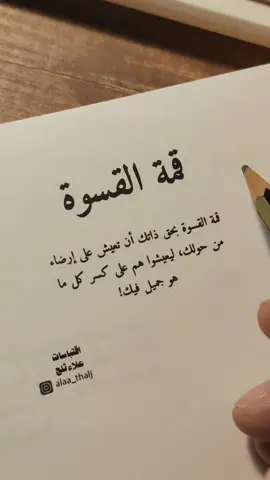 قمة القسوة
قمة القسوة بحق ذاتك أن تعيش على إرضاء
من حولك، ليعيشوا هم على كسر كل ما
هو جميل فيك!
اقتباسات
علاء ثلج
alaa_thalj